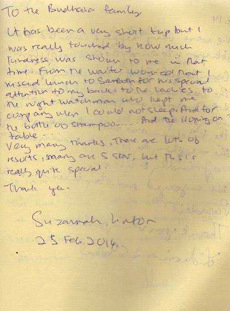 To the Budhasa family
It has been a very short trip but I
was really touched by how much
kindness was shown to me in that
time. From the waiter worried that I
missed lunch to for his special
attention to my to the ladies to
the night watchman who kept me
company when I could not sleep. And for
the bottle of shampoo... And the
table...
Very many thanks. There are lots of
resorts, many are 5 star, but this is
really quite special.
Thank you.
Suzannah
25 Feb 2014.